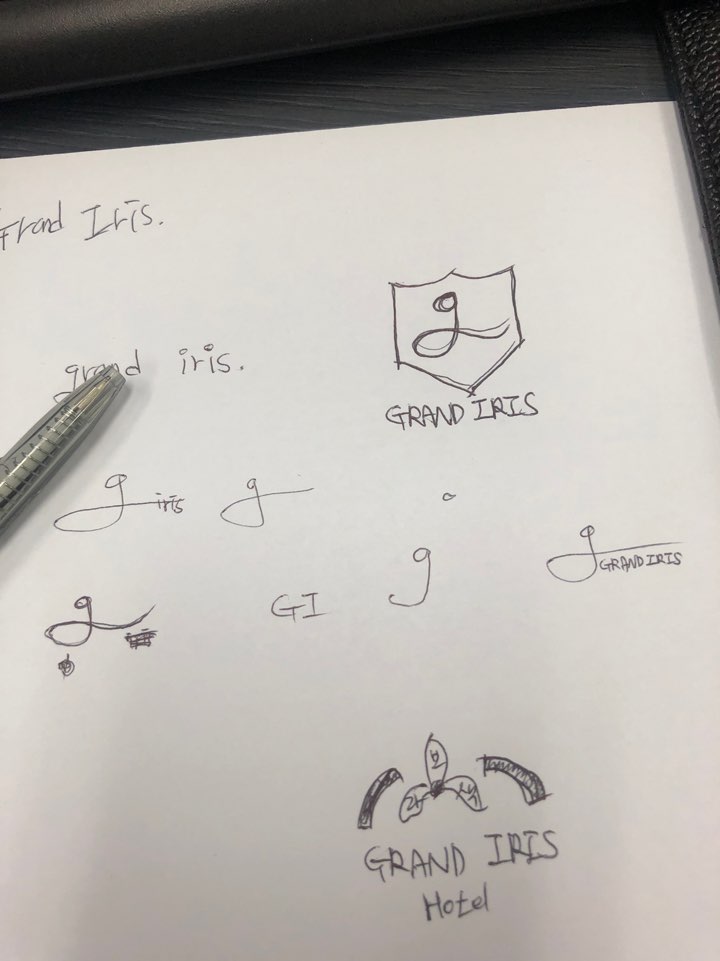 Grand Iris.
g
GRAND IRIS
grand iris.
g iris
g
g
g GRAND IRIS
g
GI
보
라
색
GRAND IRIS
Hotel